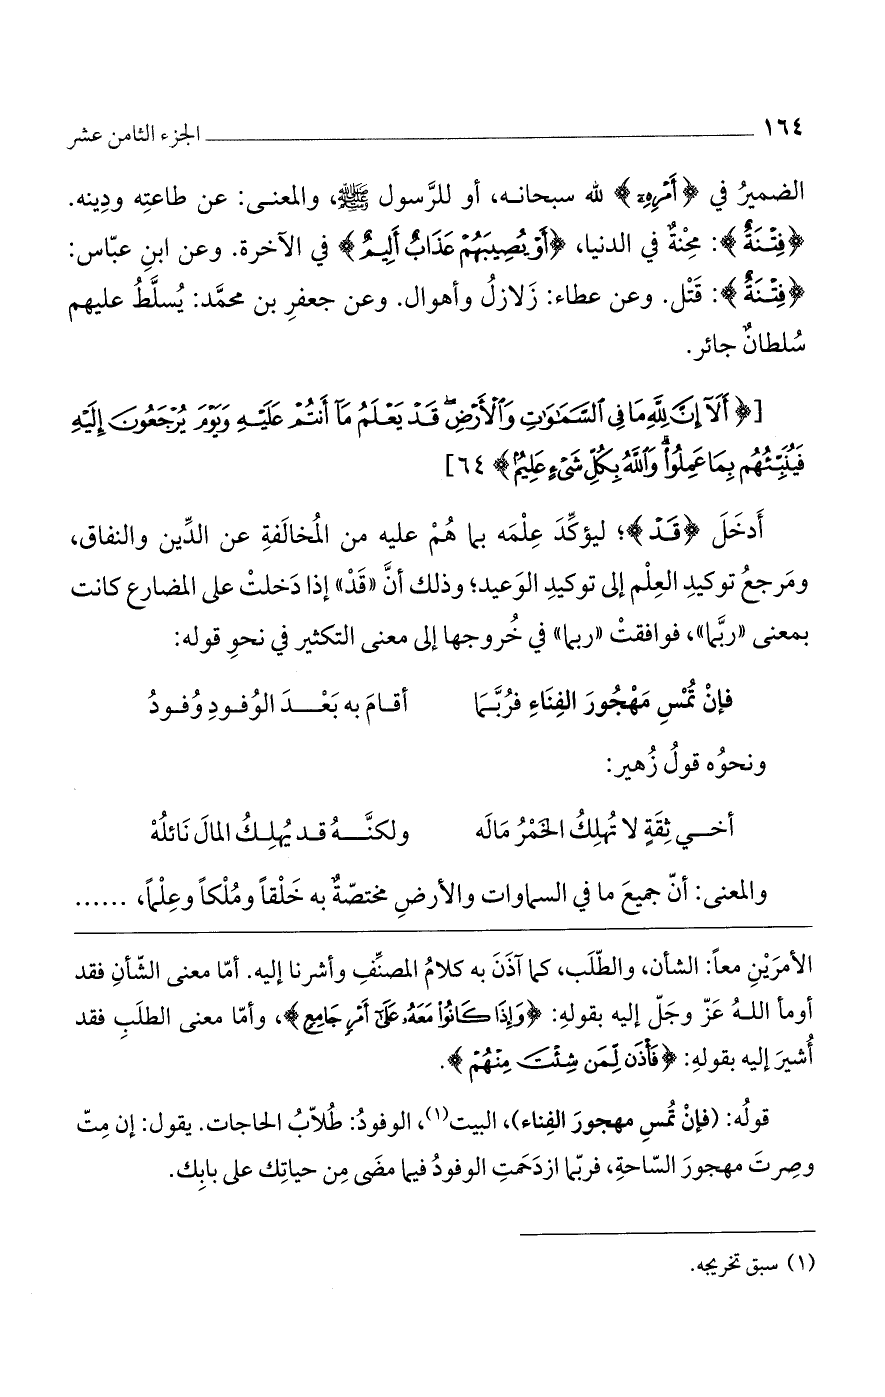 ١٦٤ ــــــــ الجزء الثامن عشر
الضميرُ في ﴿أَمْرِهِۦٓ﴾ لله سبحانـه، أو للرَّسول ﷺ، والمعنـى: عن طاعتِه ودِينه.
﴿فِتْنَةٌ﴾: مِحْنةٌ في الدنيا، ﴿أَوْ يُصِيبَهُمْ عَذَابٌ أَلِيمٌ﴾ في الآخرة. وعن ابنِ عبّاس:
﴿فِتْنَةٌ﴾: قَتْل. وعن عطاء: زَلازلُ وأهوال. وعن جعفرِ بن محمَّد: يُسلَّطُ عليهم
سُلطانٌ جائر.
[﴿أَلَآ إِنَّ لِلَّهِ مَا فِى ٱلسَّمَٰوَٰتِ وَٱلْأَرْضِ ۖ قَدْ يَعْلَمُ مَآ أَنتُمْ عَلَيْهِ وَيَوْمَ يُرْجَعُونَ إِلَيْهِ
فَيُنَبِّئُهُم بِمَا عَمِلُوا۟ ۗ وَٱللَّهُ بِكُلِّ شَىْءٍ عَلِيمٌۢ﴾ ٦٤]
أَدخَلَ ﴿قَدْ﴾؛ ليؤكِّدَ عِلْمَه بما هُمْ عليه من المُخالَفةِ عن الدِّين والنفاق،
ومَرجعُ توكيدِ العِلْم إلى توكيدِ الوَعيد؛ وذلك أنَّ «قَدْ» إذا دَخلتْ على المضارع كانت
بمعنى «ربَّما»، فوافقتْ «ربما» في خُروجها إلى معنى التكثير في نحوِ قوله:
فإنْ تُمْسِ مَهْجُورَ الفِنَاءِ فرُبَّمَا أقـامَ به بَعْـدَ الوُفـودِ وُفـودُ
ونحوُه قولُ زُهير:
أخـي ثِقَةٍ لا تُهلِكُ الخَمْرُ مَالَه ولكنَّـهُ قـد يُهلِـكُ المالَ نَائلُهْ
والمعنى: أنّ جميعَ ما في السماوات والأرضِ مختصّةٌ به خَلْقاً ومُلْكاً وعِلْماً، ......
الأمرَيْنِ معاً: الشأن، والطّلَب، كما آذَنَ به كلامُ المصنِّفِ وأشرنا إليه. أمّا معنى الشّأنِ فقد
أومأ اللـهُ عَزّ وجَلّ إليه بقولهِ: ﴿وَإِذَا كَانُوا۟ مَعَهُۥ عَلَىٰٓ أَمْرٍ جَامِعٍ﴾، وأمّا معنى الطلَبِ فقد
أُشيرَ إليه بقولهِ: ﴿فَأْذَن لِّمَن شِئْتَ مِنْهُمْ﴾.
قولُه: (فإنْ تُمسِ مهجورَ الفِناء)، البيت(١)، الوفودُ: طُلاّبُ الحاجات. يقول: إن مِتّ
وصِرتَ مهجورَ السّاحةِ، فربّما ازدَحَمتِ الوفودُ فيما مضَى مِن حياتِك على بابِك.
(١) سبق تخريجه.